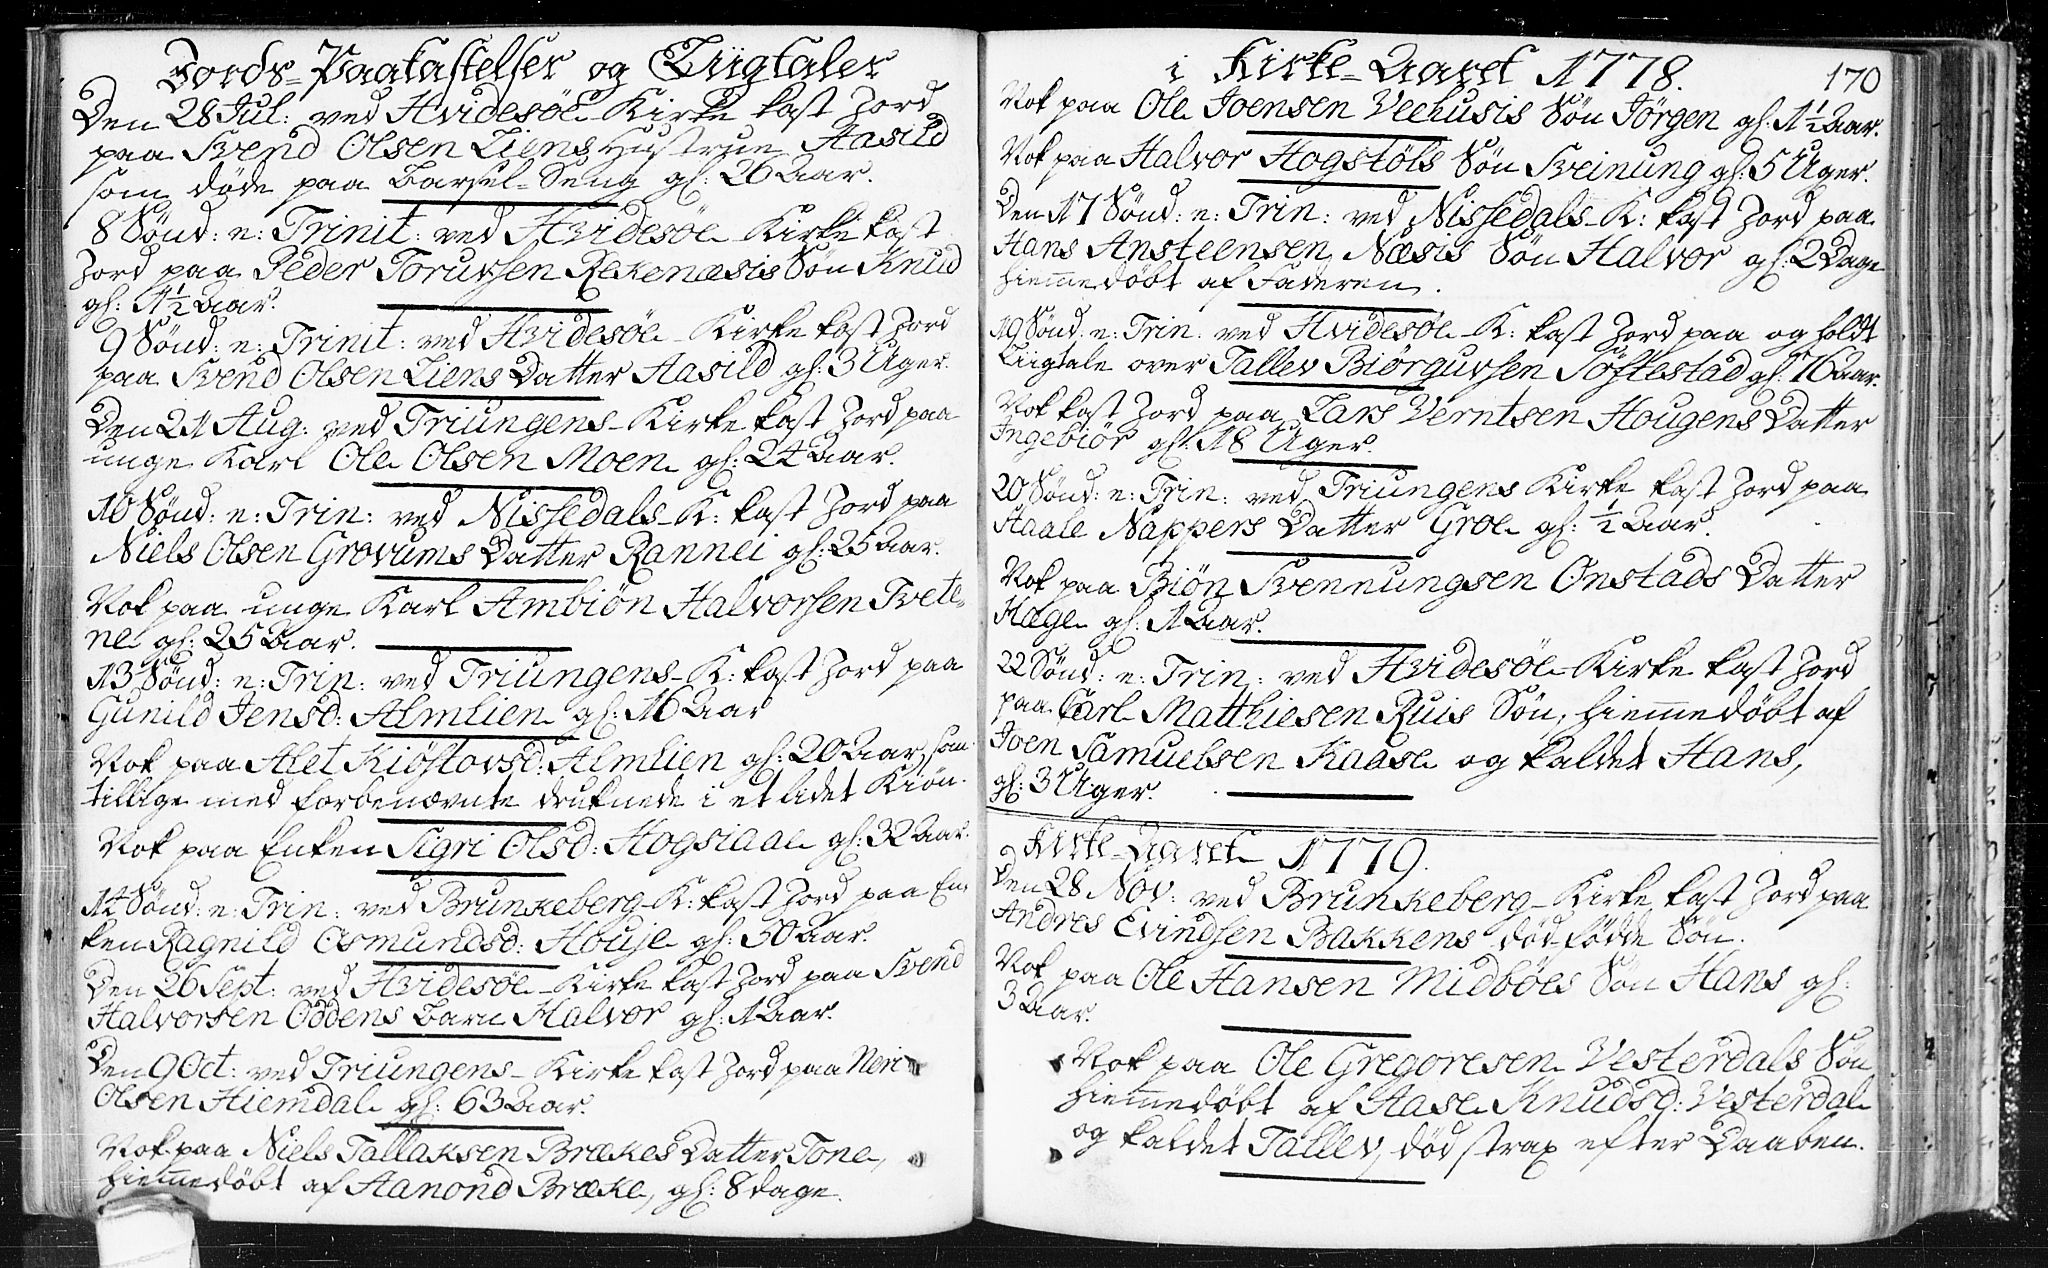 Jords-Paakastelser og Liigtaler
Den 28 Jul: ved Hvidesøe-Kirke kast Jord
paa Svend Olsen Liens Hustrue Aasild
som døde paa Barsel-Seng gl: 26 Aar.
8 Sønd: e: Trinit: ved Hvidesøe-Kirke kast
Jord paa Peder Toruvsen Rekenæsis Søn Knud
gl: 1½ Aar.
9 Sønd: e: Trinit: ved Hvidesøe-Kirke kast Jord
paa Svend Olsen Liens Datter Aasild gl: 3 Uger.
Den 21 Aug: ved Triungens-Kirke kast Jord paa
unge Karl Ole Olsen Moen gl: 24 Aar.
10 Sønd: e: Trin: ved Nissedals-K: kast Jord paa
Niels Olsen Grovums Datter Rannei gl: 25 Aar.
Nok paa unge Karl Ambiøn Halvorsen Tvete-
ne gl: 25 Aar.
13 Sønd: e: Trin: ved Triungens-K: kast Jord paa
Gunild Jensd: Almlien gl: 16 Aar
Nok paa Alet Kiøstovsd: Almlien gl: 20 Aar, som
tillige med forbenævnte druknede i et lidet Kiøn.
Nok paa Enken Sigri Olsd: Hogsiaae gl: 32 Aar.
14 Sønd: e: Trin: ved Brunkeberg-K: kast Jord paa En-
ken Ragnild Osmundsd: Houje gl: 50 Aar.
Den 26 Sept: ved Hvidesøe-Kirke kast Jord paa Svend
Halvorsen Oddens Barn Halvor gl: 1 Aar.
Den 9 Oct: ved Triungens-Kirke kast Jord paa Neri
Olsen Hiemdal gl: 63 Aar.
Nok paa Niels Tallaksen Brækes Datter Tone,
hiemmedøbt af Aanond Bræke, gl: 8 dage.
i Kirke-Aaret 1778. 170
Nok paa Ole Joensen Veehusis Søn Jørgen gl: 1½ Aar.
Nok paa Halvor Hogstøls Søn Sveinung gl: 5 Uger.
Den 17 Sønd: e: Trin: ved Nissedals-K: kast Jord paa
Hans Ansteensen Næsis Søn Halvor gl: 2 Dage
hiemmedøbt af Faderen.
19 Sønd: e: Trin: ved Hvidesøe-K: kast Jord paa og holdt
Liigtale over Tallev Biørguvsen Søftestad gl: 76 Aar.
Nok kast Jord paa Lars Verntsen Hougens Datter
Ingebiør gl: 18 Uger.
20 Sønd: e: Trin: ved Triungens Kirke kast Jord paa
Staale Nappers Datter Groe gl: ½ Aar.
Nok paa Biøn Svennungsen Onstads Datter
Hæge gl: 1 Aar.
22 Sønd: e: Trin: ved Hvidesøe-Kirke kast Jord
paa Carl Matthiesen Ruis Søn, hiemmedøbt af
Joen Samuelsen Kaase og kaldet Hans,
gl: 3 Uger.
Kirke-Aaret 1779.
Den 28 Nov: ved Brunkeberg-Kirke kast Jord paa
Andres Evindsen Bakkens død-fødde Søn.
Nok paa Ole Hansen Midbøes Søn Hans gl:
3 Aar.
Nok paa Ole Gregoresen Vesterdals Søn
hiemmedøbt af Aase Knudsd: Vesterdal
og kaldet Tallev, død strax efter Daaben.